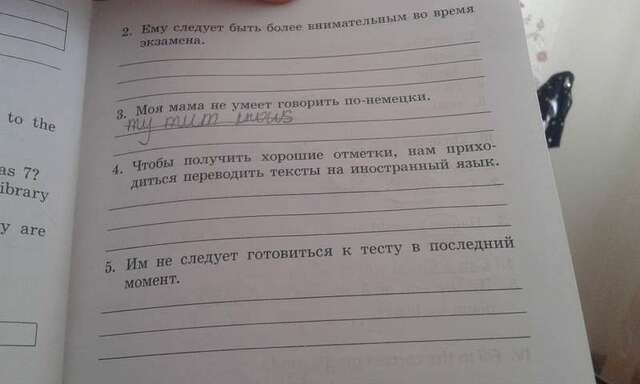 2. Ему следует быть более внимательным во время
экзамена.
to the
3. Моя мама не умеет говорить по-немецки.
my mum
as 7?
ibrary
y are
4. Чтобы получить хорошие отметки, нам прихо-
диться переводить тексты на иностранный язык.
5. Им не следует готовиться к тесту в последний
момент.